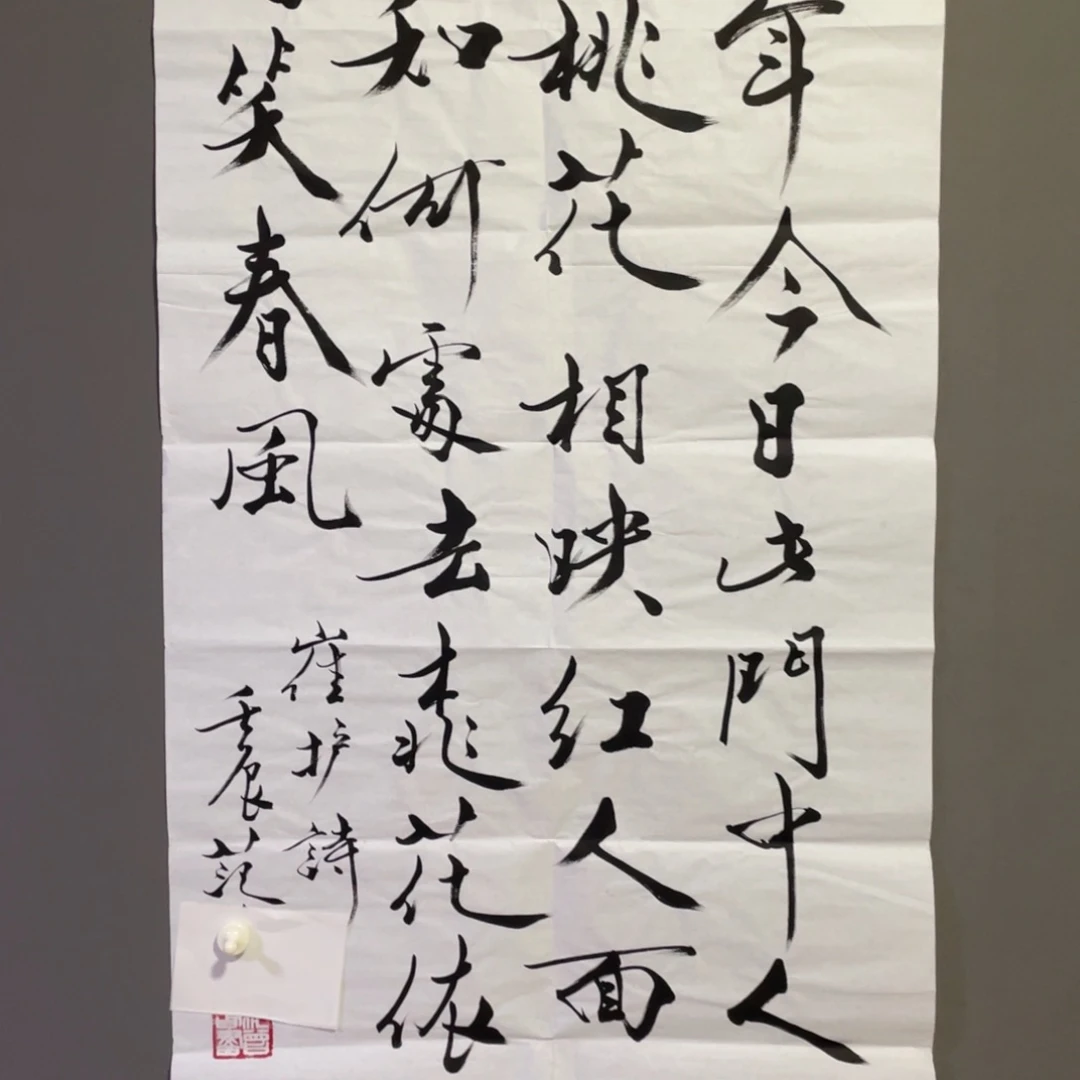 年今日此門中人
桃花相映红人面
知何處去桃花依
笑春風
崔护詩
壬辰范